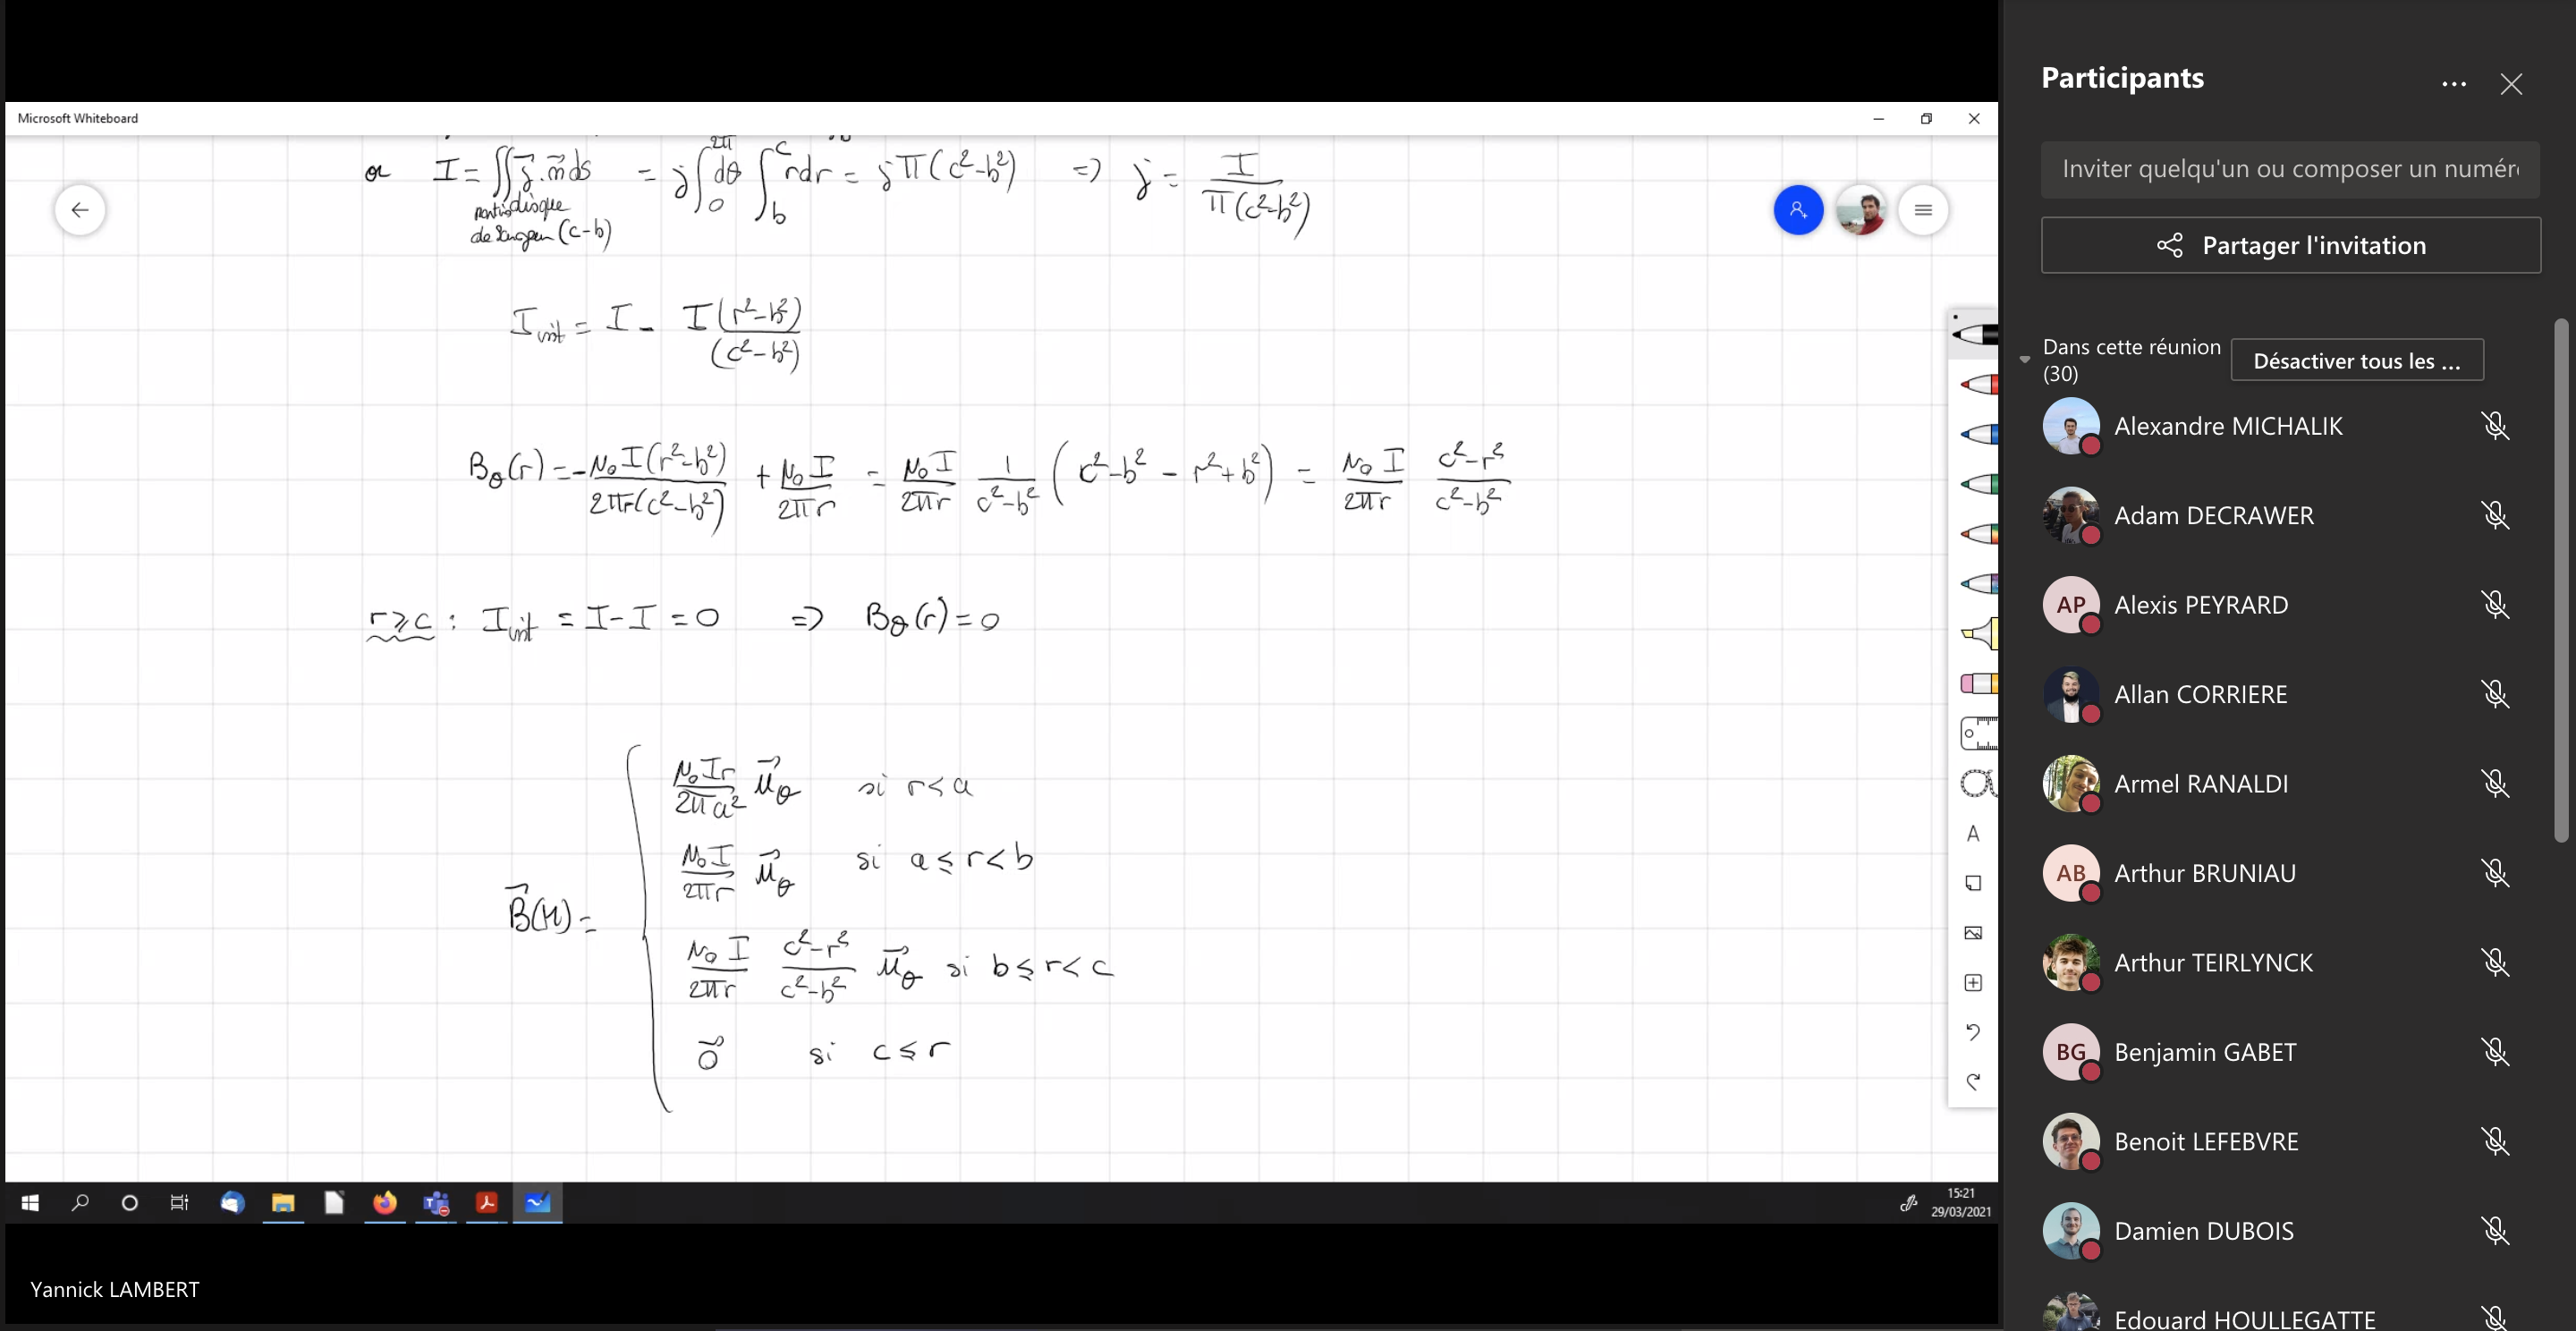 Microsoft Whiteboard
or I = ∬ j⃗.n⃗ ds = j ∫₀^2π dθ ∫_b^c rdr = jπ(c²-b²) => j = I / π(c²-b²)
disque
(c-b)
I_int = I - I(r²-b²) / (c²-b²)
Bθ(r) = -μ₀I(r²-b²) / 2πr(c²-b²) + μ₀I / 2πr = μ₀I / 2πr 1 / c²-b² (c²-b² - r²+b²) = μ₀I / 2πr c²-r² / c²-b²
r⩾c : I_int = I-I = 0 => Bθ(r) = 0
μ₀Ir / 2πa² u⃗θ si r<a
μ₀I / 2πr u⃗θ si a⩽r<b
B⃗(M) =
μ₀I / 2πr c²-r² / c²-b² u⃗θ si b⩽r<c
0⃗ si c⩽r
A
15:21
29/03/2021
Yannick LAMBERT
Participants
Inviter quelqu'un ou composer un numér
Partager l'invitation
Dans cette réunion
(30)
Désactiver tous les ...
Alexandre MICHALIK
Adam DECRAWER
AP Alexis PEYRARD
Allan CORRIERE
Armel RANALDI
AB Arthur BRUNIAU
Arthur TEIRLYNCK
BG Benjamin GABET
Benoit LEFEBVRE
Damien DUBOIS
Edouard HOULLEGATTE